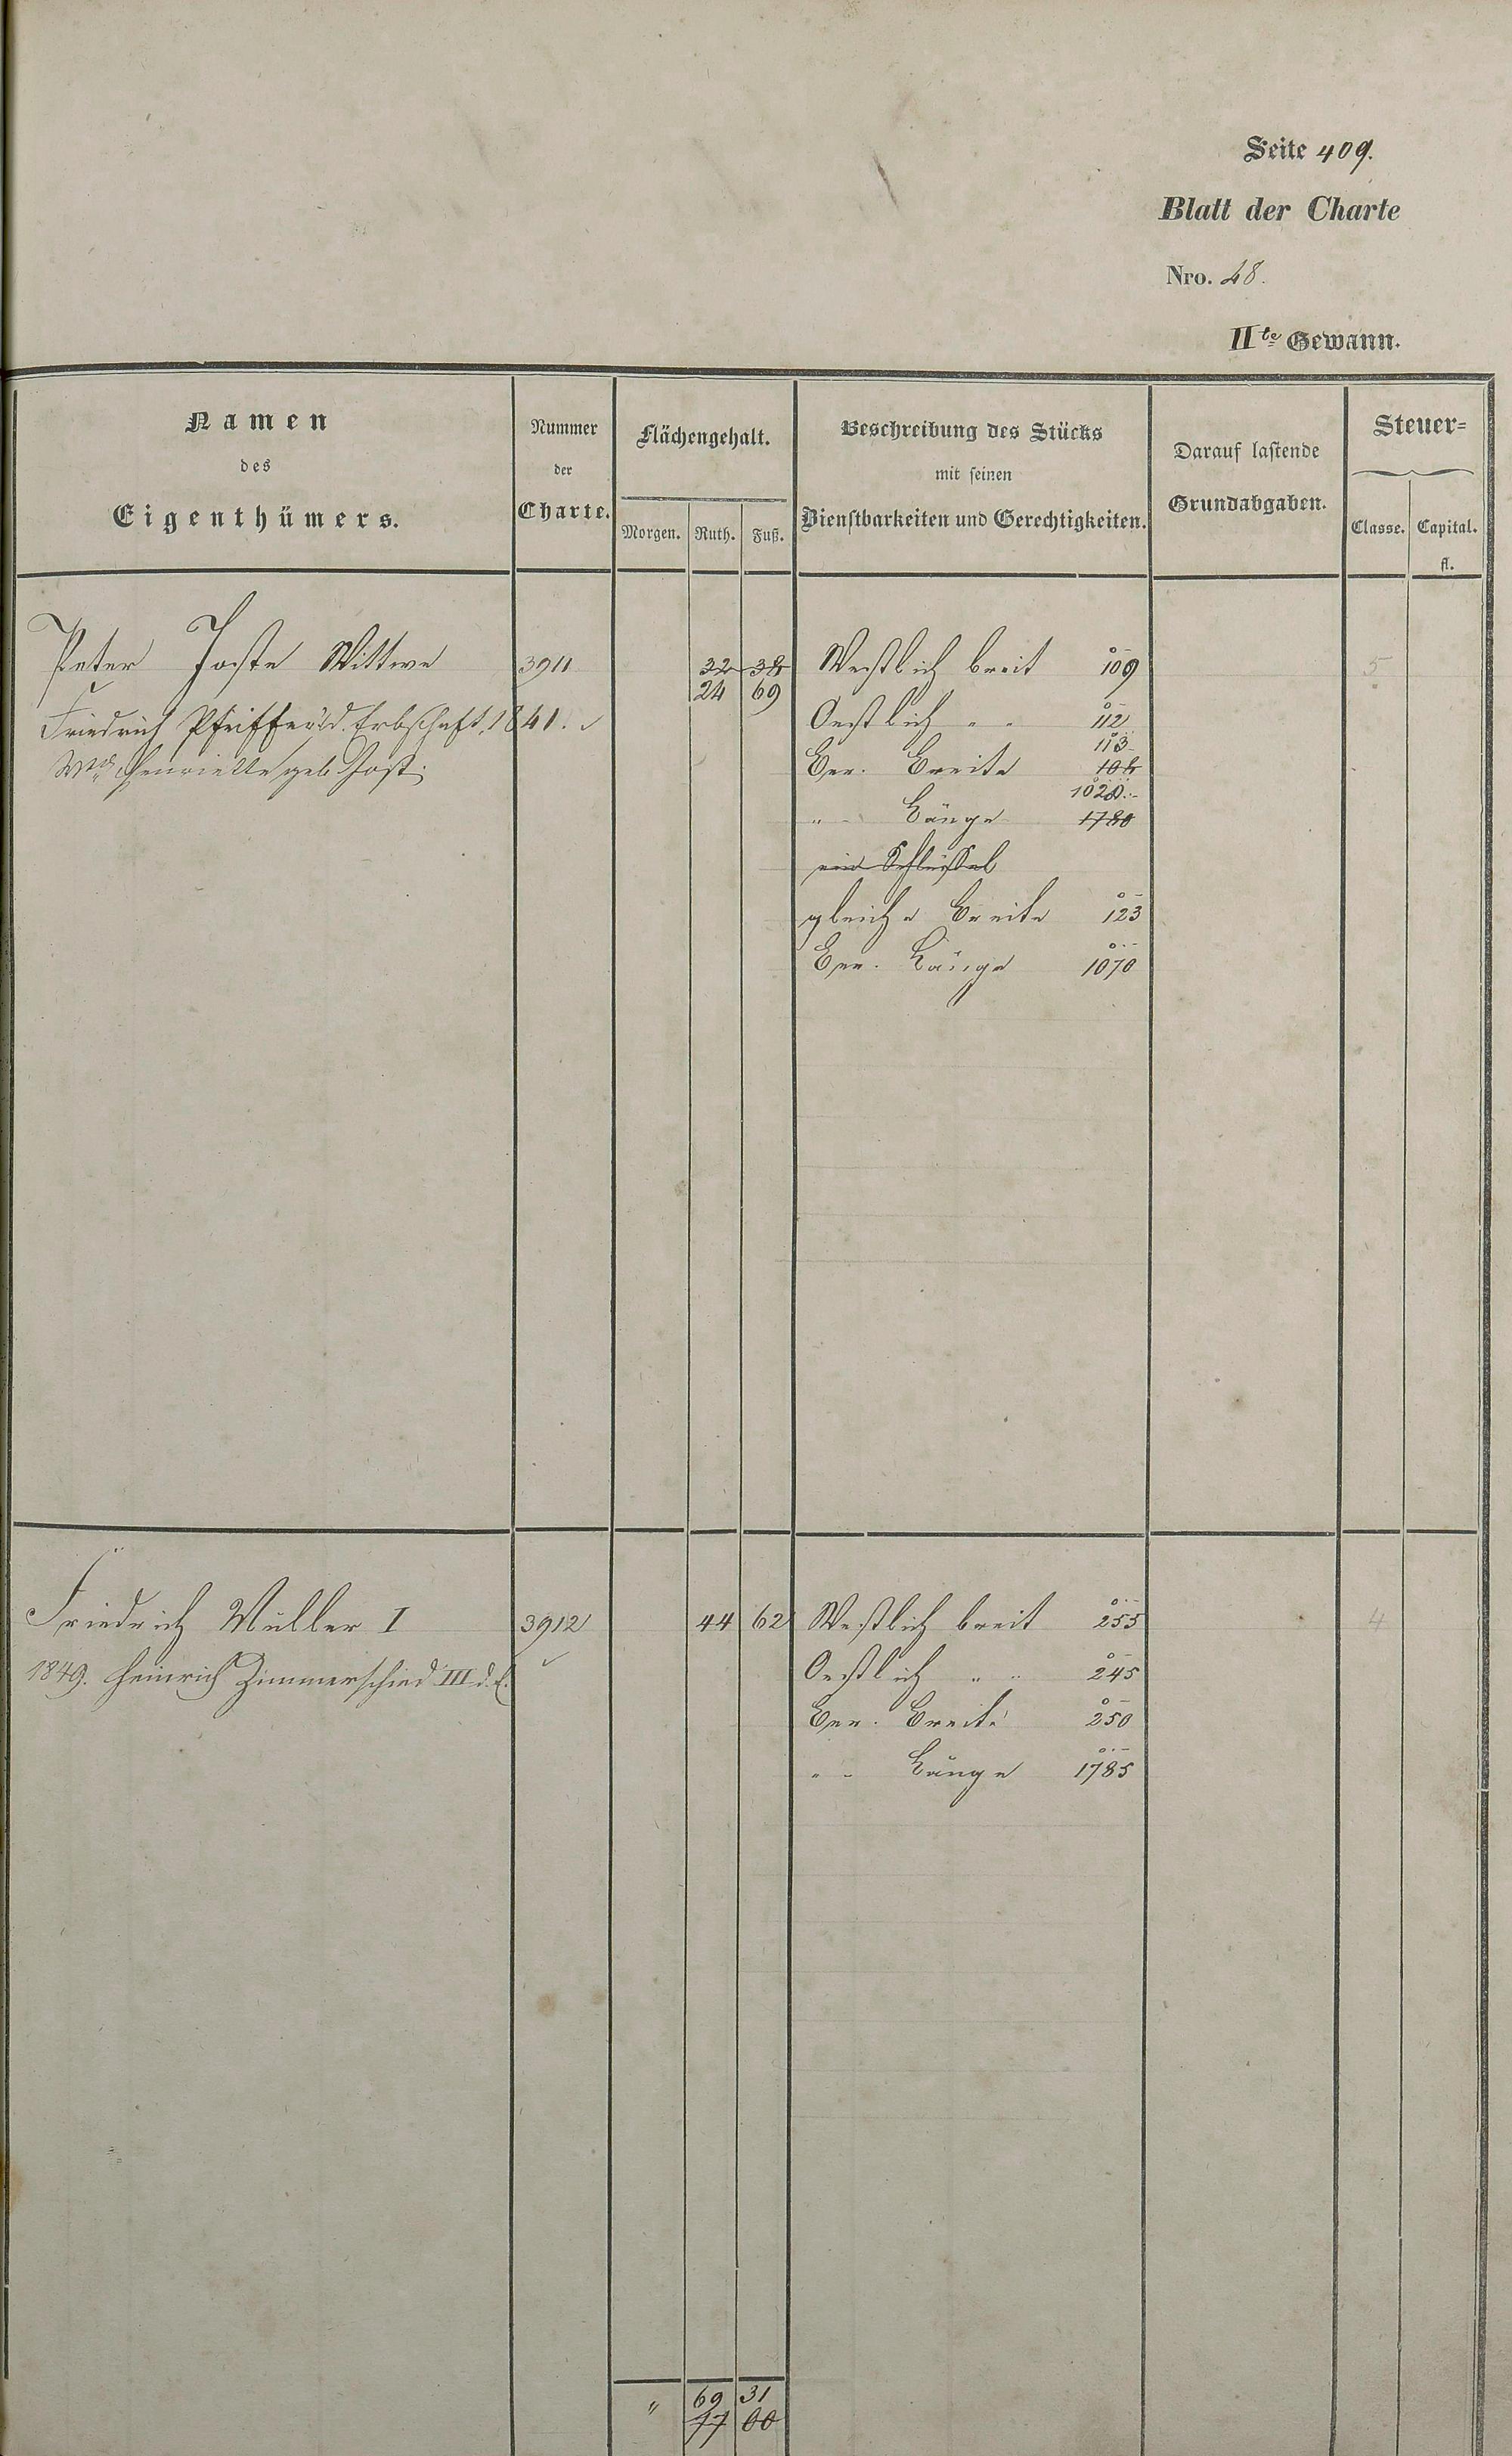 Seite 409.
Blatt der Charte
Nro. 48.
IIte Gewann.
Namen
des
Eigenthümers.
Nummer
der
Charte.
Flächengehalt.
Morgen. Ruth. Fuß.
Beschreibung des Stücks
mit seinen
Dienstbarkeiten und Gerechtigkeiten.
Darauf lastende
Grundabgaben.
Steuer=
Classe. Capital.
fl.
Peter Joste Wittwe 3911 32 38 Westlich breit 109 5
24 69
Friedrich Pfeiffer d. Erbschaft, 1841. Oestlich " " 112
113
Wwe Henriette geb. Jost. Ger. Breite 108
1020
" - Länge 1780
ein Schlüssel
gleiche Breite 123
Ger. Länge 1070
Friedrich Müller I 3912 44 62 Westlich breit 255 4
1849. Heinrich Zimmerschied III d. E. Oestlich " " 245
Ger. Breite 250
" - Länge 1785
" 69 31
77 00